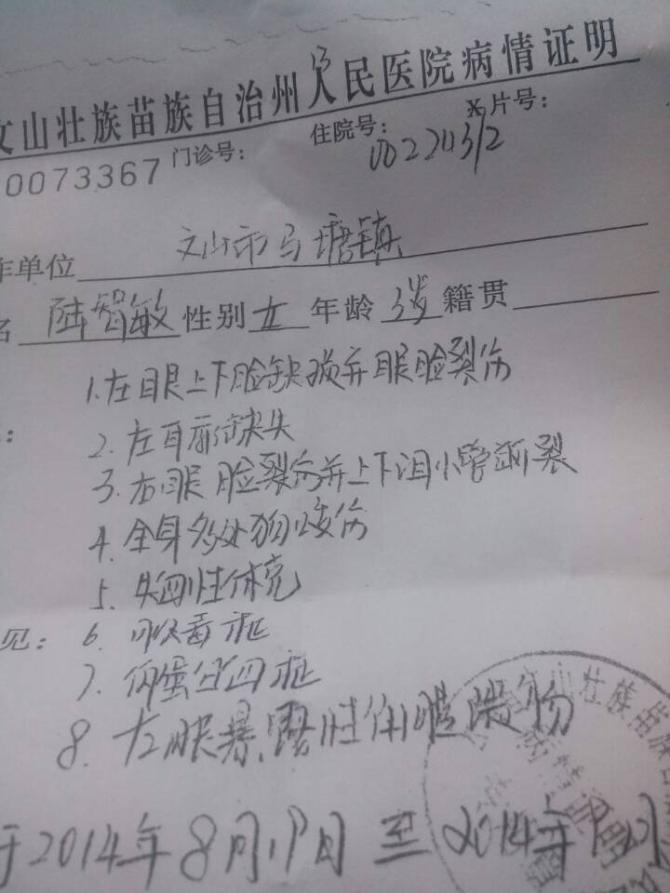 文山壮族苗族自治州人民医院病情证明
0073367 门诊号: 住院号: 00224312 片号:
作单位 文山市马塘镇
名 陆智敏 性别 女 年龄 3岁 籍贯
1.左眼上下睑缺损并眼睑裂伤
: 2.左耳廓缺失
3.右眼睑裂伤并上下泪小管断裂
4.全身多处狗咬伤
5.失血性休克
见: 6.败毒症
7.低蛋白血症
8.左眼暴露性角膜溃疡
于2014年8月19日至2014年